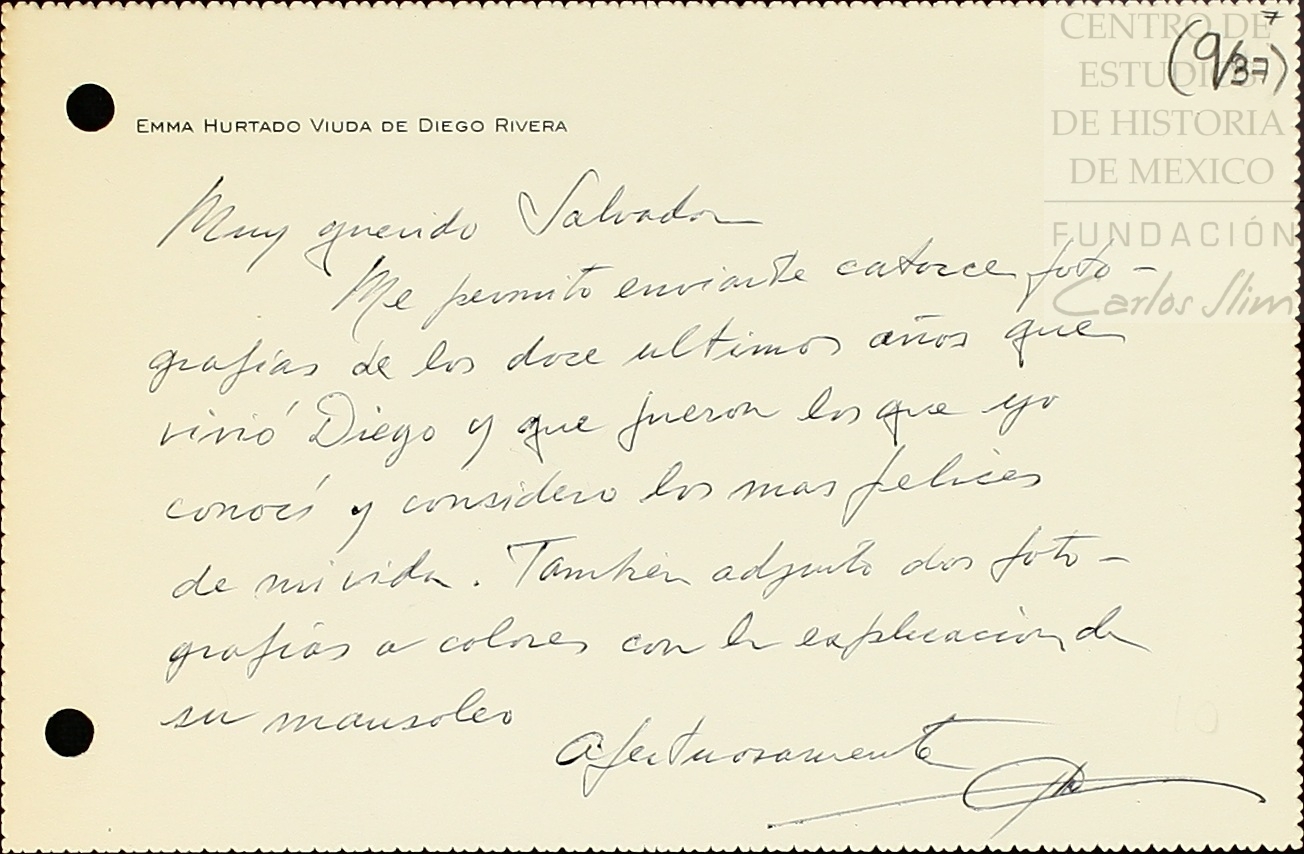 CENTRO DE
ESTUDIOS
DE HISTORIA
DE MEXICO
FUNDACIÓN
Carlos Slim
7
(9/37)
EMMA HURTADO VIUDA DE DIEGO RIVERA
Muy querido Salvador
Me permito enviarte catorce foto-
grafias de los doce ultimos años que
vivió Diego y que fueron los que yo
conocí y considero los mas felices
de mi vida. Tambien adjunto dos foto-
grafias a colores con la explicacion de
su mausoleo
Afectuosamente